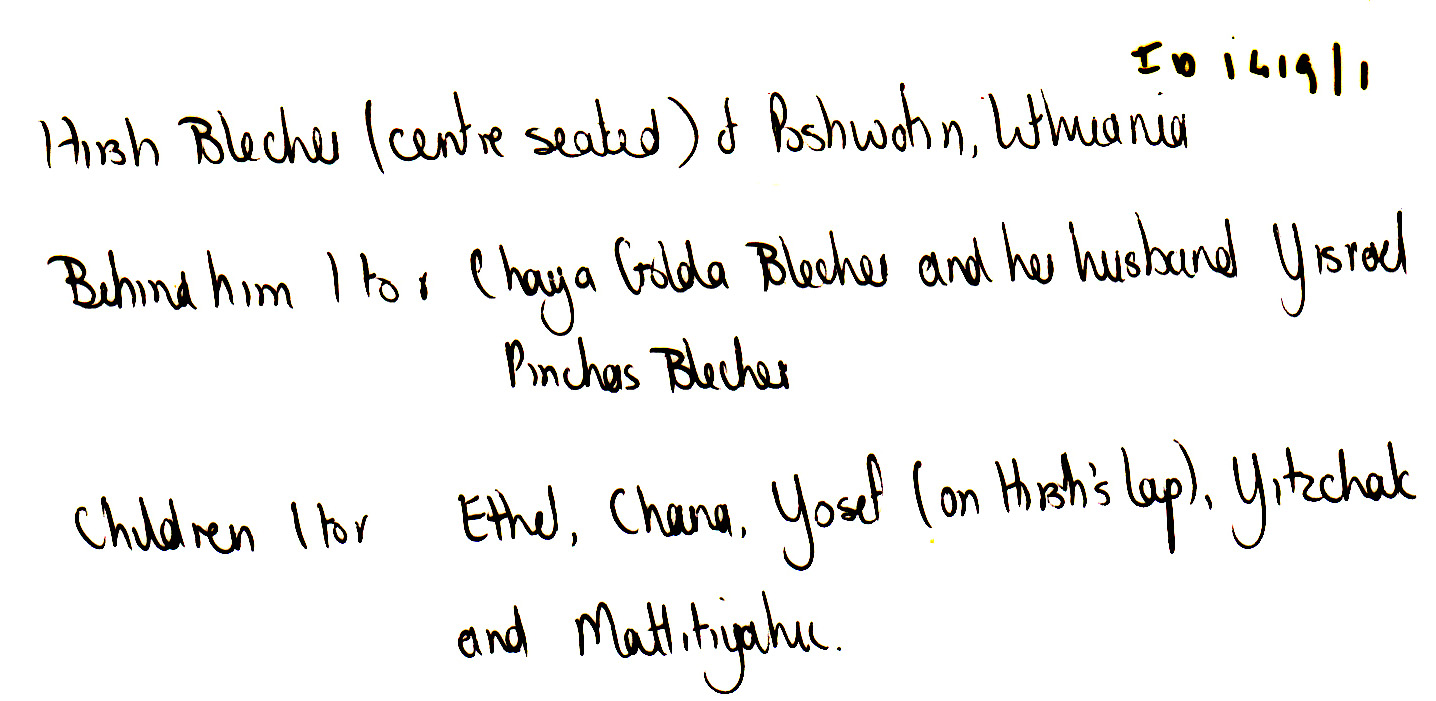 ID 1419/1
Hirsh Blecher (centre seated) of Pashwohn, Lithuania
Behind him l to r Chaya Golda Blecher and her husband Yisroel
Pinchas Blecher
Children l to r Ethel, Chana, Yosef (on Hirsh's lap), Yitzchak
and Mattitiyahu.